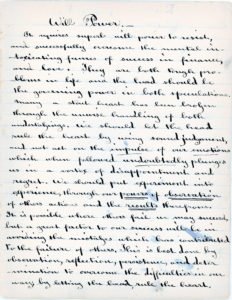 Will Power,
It requires superb will power to resist,
and successfully overcome the mental in-
toxicating fumes of success in finances,
and love. They are both tough pro-
blems in life and the head should be
the governing power in both speculations,
many a stout heart has been broken
through the unwise handling of both
undertakings. We should let the head
rule the heart by using good judgment,
and not act on the impulse of our emotions
which when followed undoubtedly plunges
us in a vortex of disappointment and
regret. We should put experiment into
experience, through our power of observation
of others actions and the results therefrom.
It is possible where others fail we may succeed,
but a great factor to our success will be in
avoiding the mistakes which have contributed
to the failure of others. This is best done by
observation, reflection, persistence, and deter-
mination to overcome the difficulties in our
way by letting the head rule the heart.